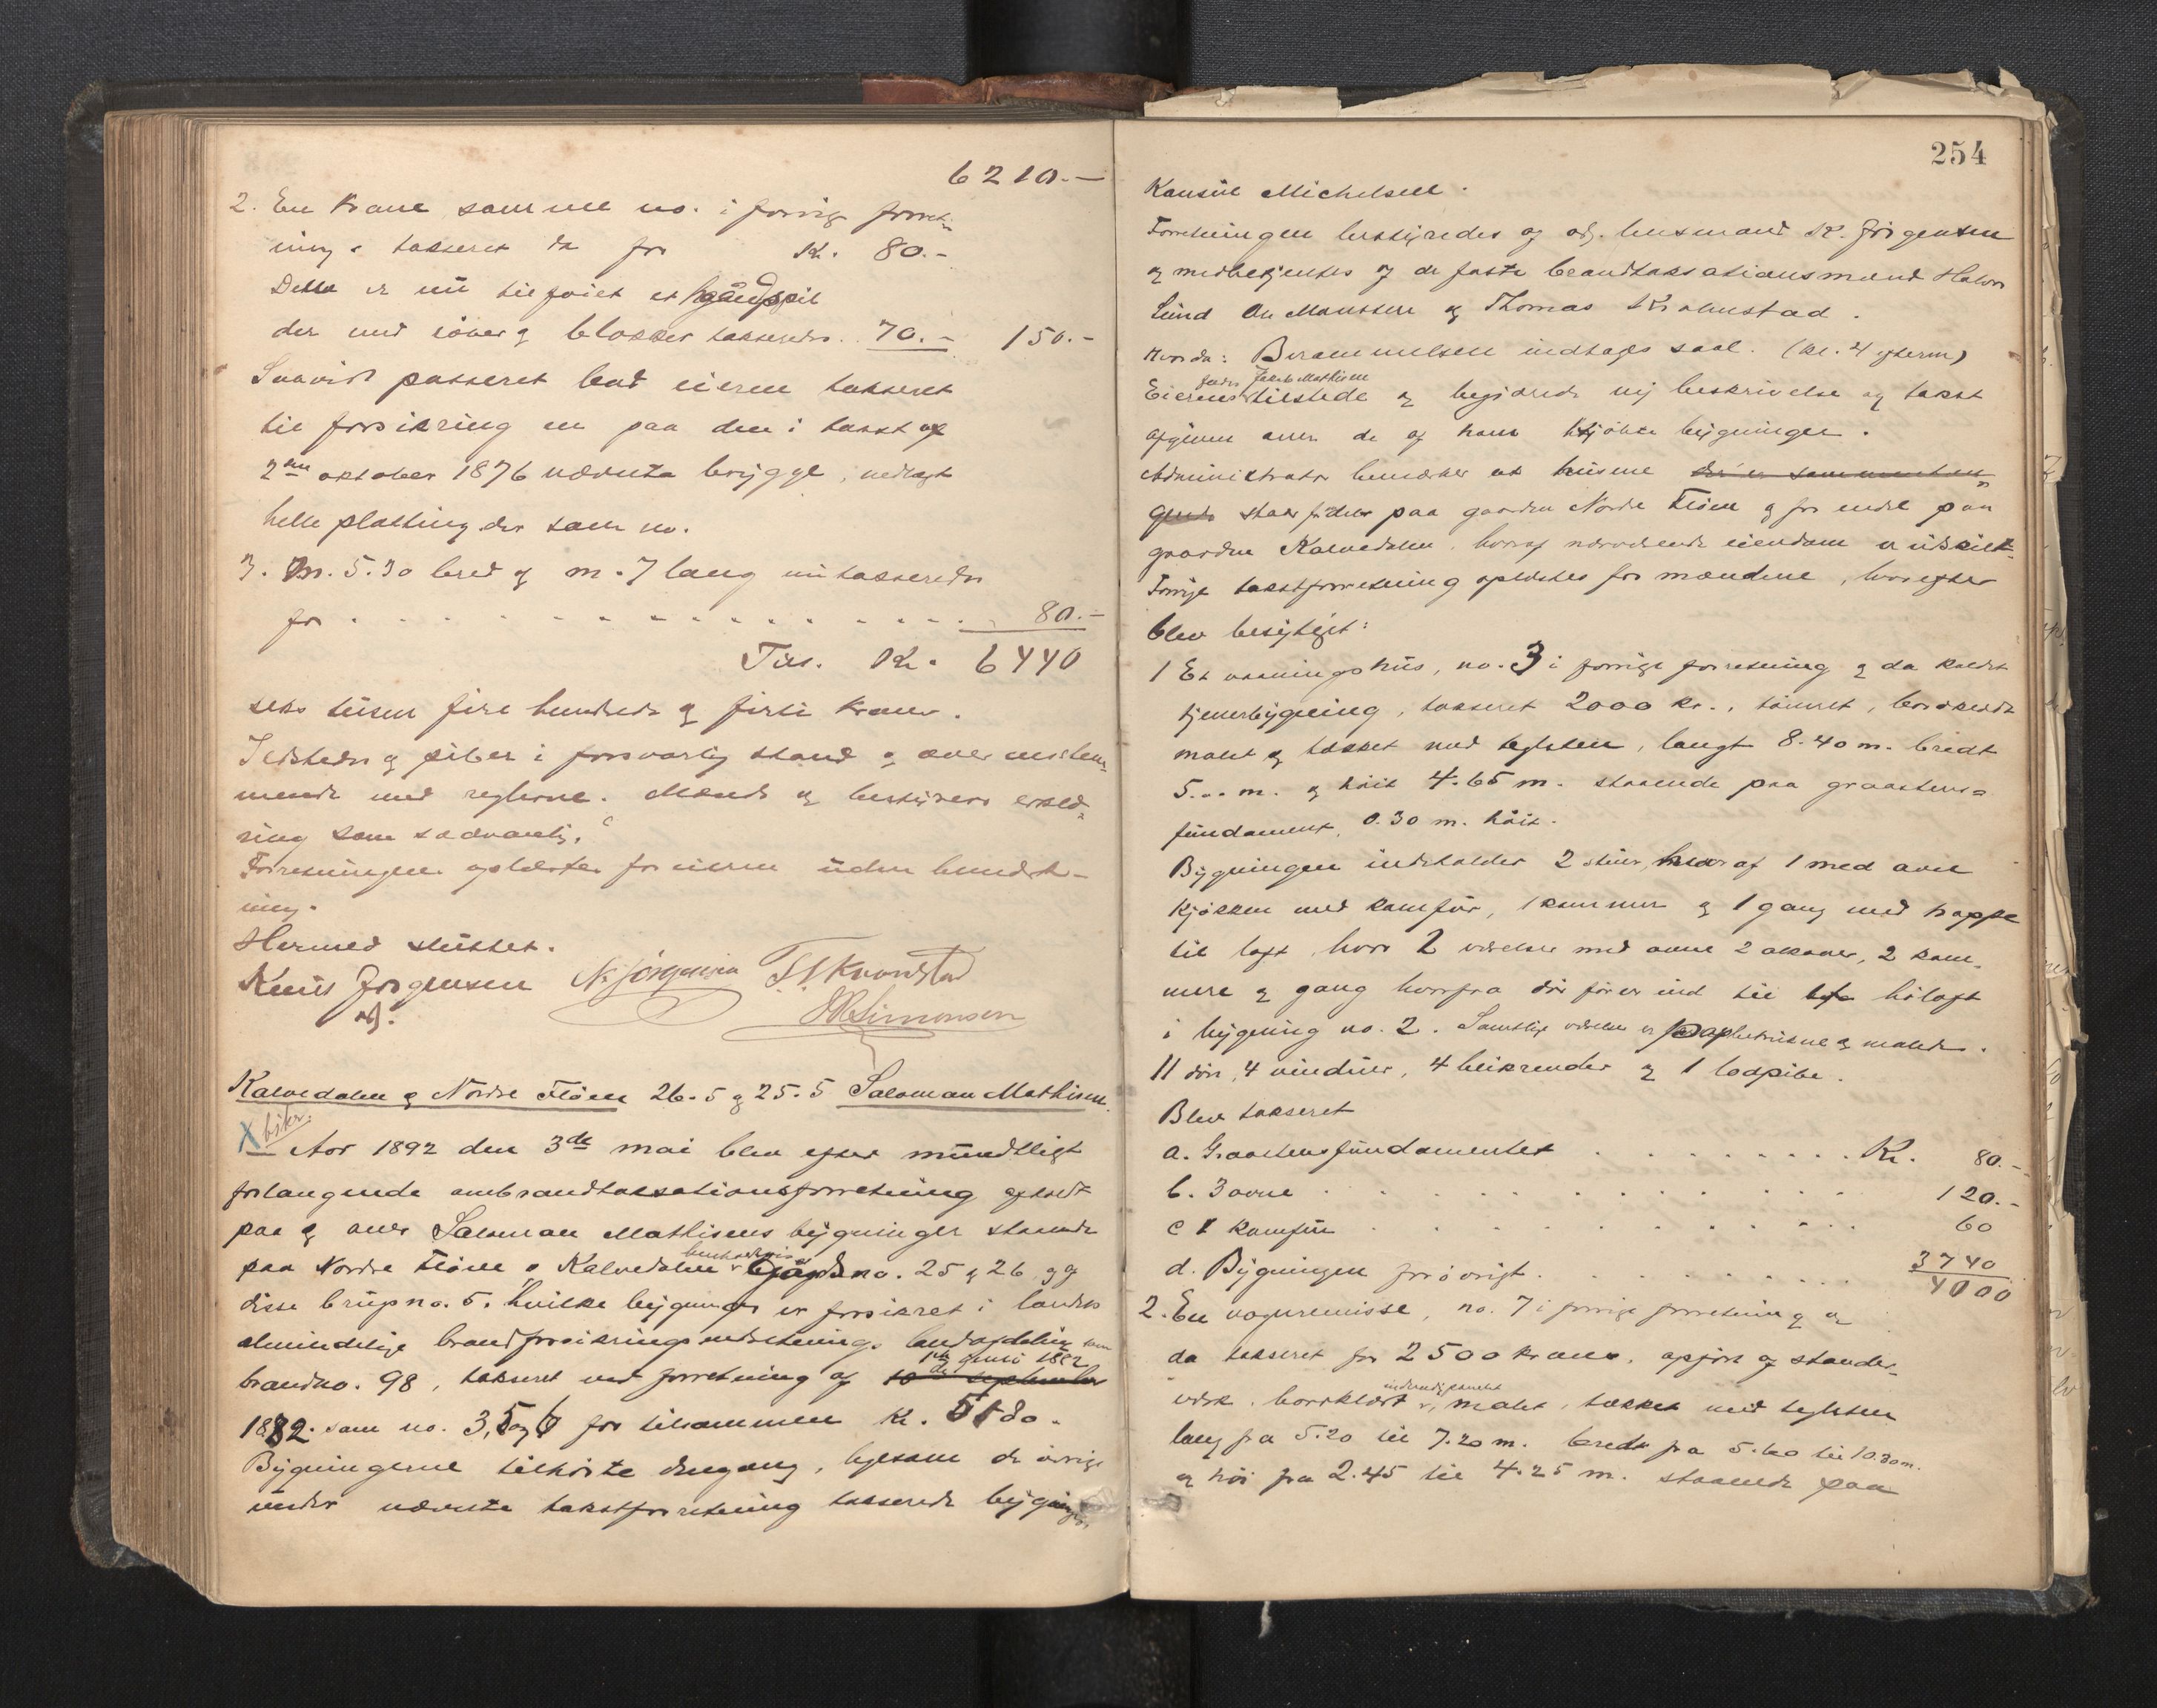 6210.-
2. En krane som nu no. i forrige forret-
ning - takseret da for Kr. 80.-
Dette er nu tilføiet et haandspil
der med tover og blokker takseredes. 70.- 150.-
Saavidt passeret bad eieren takseret
til forsikring en paa den i takst af
2den oktober 1876 nævnte brygge, nedlagt
helle platting der som no.
3. M. 5.30 bred og m. 7 lang nu takseredes
for . . . . . . . . . 80.-
Tils. Kr. 6440
seks tusen fire hundrede og firti kroner.
Ildsteder og piber i forsvarlig stand og overensstem-
mende med reglerne. Mænds og bestyrers erklæ-
ring som sædvanlig.
Forretningen oplæstes for eieren uden bemerk-
ning.
Hermed sluttet.
Knut Jørgensen N. Jørgensen T. S. Kronstad
adj. Simonsen
Kalvedalen og Nordre Fløen 26.5 og 25.5 Saloman Mathisen.
X bskr.
Aar 1892 den 3de mai blev efter mundtligt
forlangende ombrandtaksationsforretning afholdt
paa og over Saloman Mathisens bygninger staaende
paa Nordre Fløen og Kalvedalen henholdsvis gaards no. 25 og 26, og
disse brugsno. 5. hvilke bygninger er forsikret i landets
almindelige brandforsikringsindretnings landafdeling som
brandno. 98, takseret ved forretning af 1ste juni 1882
1882. som no. 3, 5 og 6 for tilsammen Kr. 5580.
Bygningerne tilhørte dengang, ligesom de øvrige
under nævnte takstforretning takserede bygninger,
254
Konsul Michelsen.
Forretningen bestyredes af adj. lensmand K. Jørgensen
og medbetjentes af de faste brandtaksationsmænd Halvor
Lund Ole Monssen og Thomas Kronstad.
Hvorda: Berammelsen indtages saal. (kl. 4 efterm)
Eierens fader Jakob Mathisen tilstede og begjærede ny beskrivelse og takst
afgiven over de af ham kjøbte bygninger.
Administrator bemærker at husene der er sammenhæn-
gende staar fordeles paa gaarden Nordre Fløen og for endel paa
gaarden Kalvedalen, hvoraf nærværende eiendom er udskilt.
Forrige takstforretning oplæstes for mændene, hvorefter
blev besigtiget:
1 Et vaaningshus, no. 3 i forrige forretning og da kaldet
tjenerbygning, takseret 2000 kr., tømret, bordklædt
malet og tækket med teglsten, langt 8.40 m. bredt
5... m. og høit 4.65 m. staaende paa graastens-
fundament, 0.30 m. høit.
Bygningen indeholder 2 stuer, hvoraf 1 med ovn
kjøkken med komfur, 1 kammer og 1 gang med trappe
til loft, hvor 2 værelser med ovne 2 alkover, 2 kam-
mere og gang hvorfra dør fører ind til høloft
i bygning no. 2. Samtlige værelser er paphetrukne og malede.
11 dører, 4 vinduer, 4 beikrender og 1 lodpibe.
Blev takseret
a. Graastensfundamentet . . . . . . Kr. 80.-
b. 3 ovne . . . . . . . . . 120.-
c 1 komfur . . . . . . . . . 60
d. Bygningen forøvrigt . . . . . . . 3740
4000
2. En vognremisse, no. 7 i forrige forretning og
da takseret for 2500 kroner, opført af stander-
verk, bordklædt indvendig panelet, malet, tækket med teglsten
lang fra 5.20 til 7.20 m. bred fra 5.60 til 10.30 m.
og høi fra 2.45 til 4.25 m. staaende paa